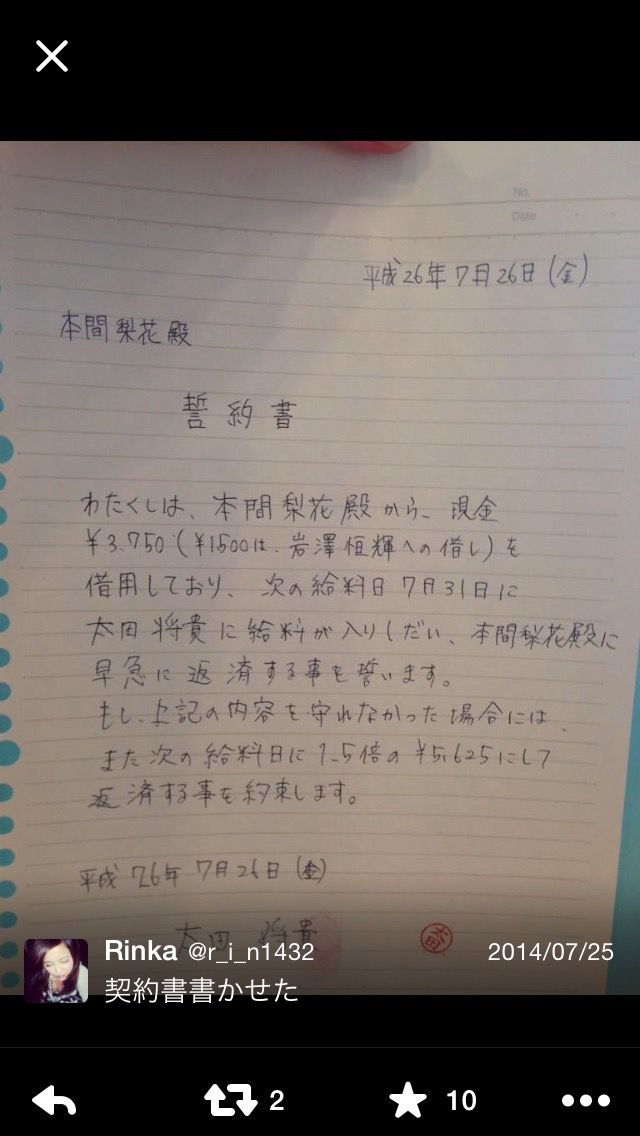 No.
Date
平成26年7月26日(金)
本間梨花殿
誓約書
わたくしは、本間梨花殿から、現金
¥3.750(¥1500は、岩澤恒輝への借し)を
借用しており、次の給料日7月31日に
太田将貴に給料が入りしだい、本間梨花殿に
早急に返済する事を誓います。
もし、上記の内容を守れなかった場合には、
また次の給料日に1.5倍の¥5.625にして
返済する事を約束します。
平成26年7月26日(金)
太田 将貴
Rinka @r_i_n1432
2014/07/25
契約書書かせた
2
10